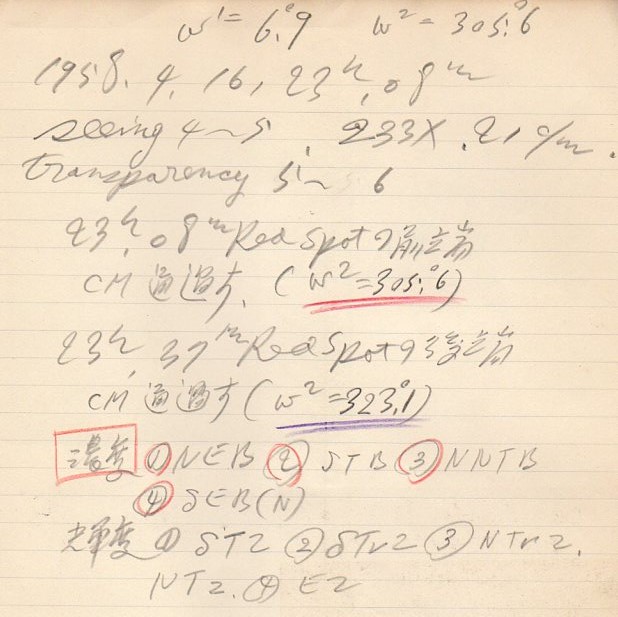 ω¹= 6.°9 ω²= 305.°6
1958. 4. 16, 23ʰ, 08ᵐ
seeing 4~5. 233X. 21 c/m.
transparency 5~6
23ʰ, 08ᵐ Red Spotの前端
CM通過す. (ω²=305.°6)
23ʰ, 37ᵐ Red Spotの後端
CM通過す (ω²=323.°1)
濃度 ① NEB ② STB ③ NNTB
④ SEB(N)
輝度 ① STZ ② STrZ ③ NTrZ.
NTZ. ④ EZ